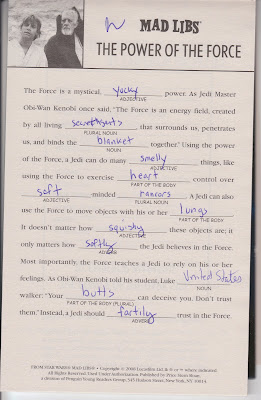 MAD LIBS®
THE POWER OF THE FORCE
The Force is a mystical, yucky power. As Jedi Master
ADJECTIVE
Obi-Wan Kenobi once said, "The Force is an energy field, created
by all living secret agents that surrounds us, penetrates
PLURAL NOUN
us, and binds the blanket together." Using the power
NOUN
of the Force, a Jedi can do many smelly things, like
ADJECTIVE
using the Force to exercise heart control over
PART OF THE BODY
soft-minded rancors. A Jedi can also
ADJECTIVE PLURAL NOUN
use the Force to move objects with his or her lungs.
PART OF THE BODY
It doesn't matter how squishy these objects are; it
ADJECTIVE
only matters how softly the Jedi believes in the Force.
ADVERB
Most importantly, the Force teaches a Jedi to rely on his or her
feelings. As Obi-Wan Kenobi told his student, Luke United States
NOUN
walker: "Your butts can deceive you. Don't trust
PART OF THE BODY (PLURAL)
them." Instead, a Jedi should fartily trust in the Force.
ADVERB
FROM STAR WARS® MAD LIBS® • Copyright © 2008 Lucasfilm Ltd. & ® or ™ where indicated.
All Rights Reserved. Used Under Authorization. Published by Price Stern Sloan,
a division of Penguin Young Readers Group, 345 Hudson Street, New York, NY 10014.